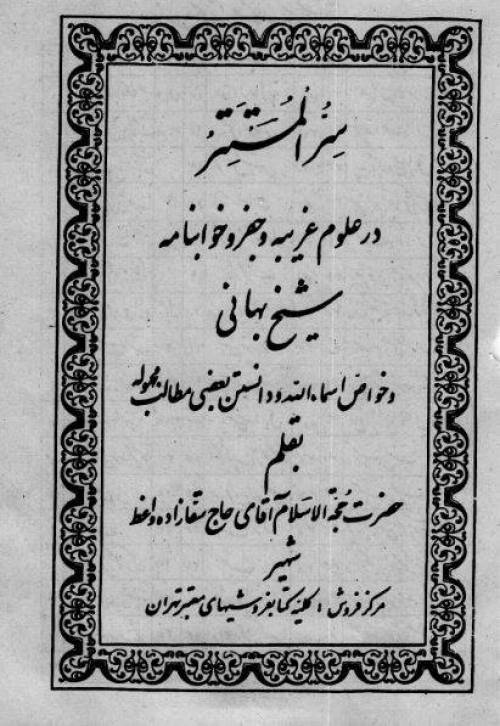 سِرُّ الْمُسْتَتَرُ
در علوم غریبه و جفر و خوابنامه
شیخ بهائی
و خواص اسماء الله و دانستن بعضی مطالب مجهوله
بقلم
حضرت حجة الاسلام آقای حاج سقازاده واعظ
شهیر
مرکز فروش : کلیه کتابفروشیهای معتبر تهران